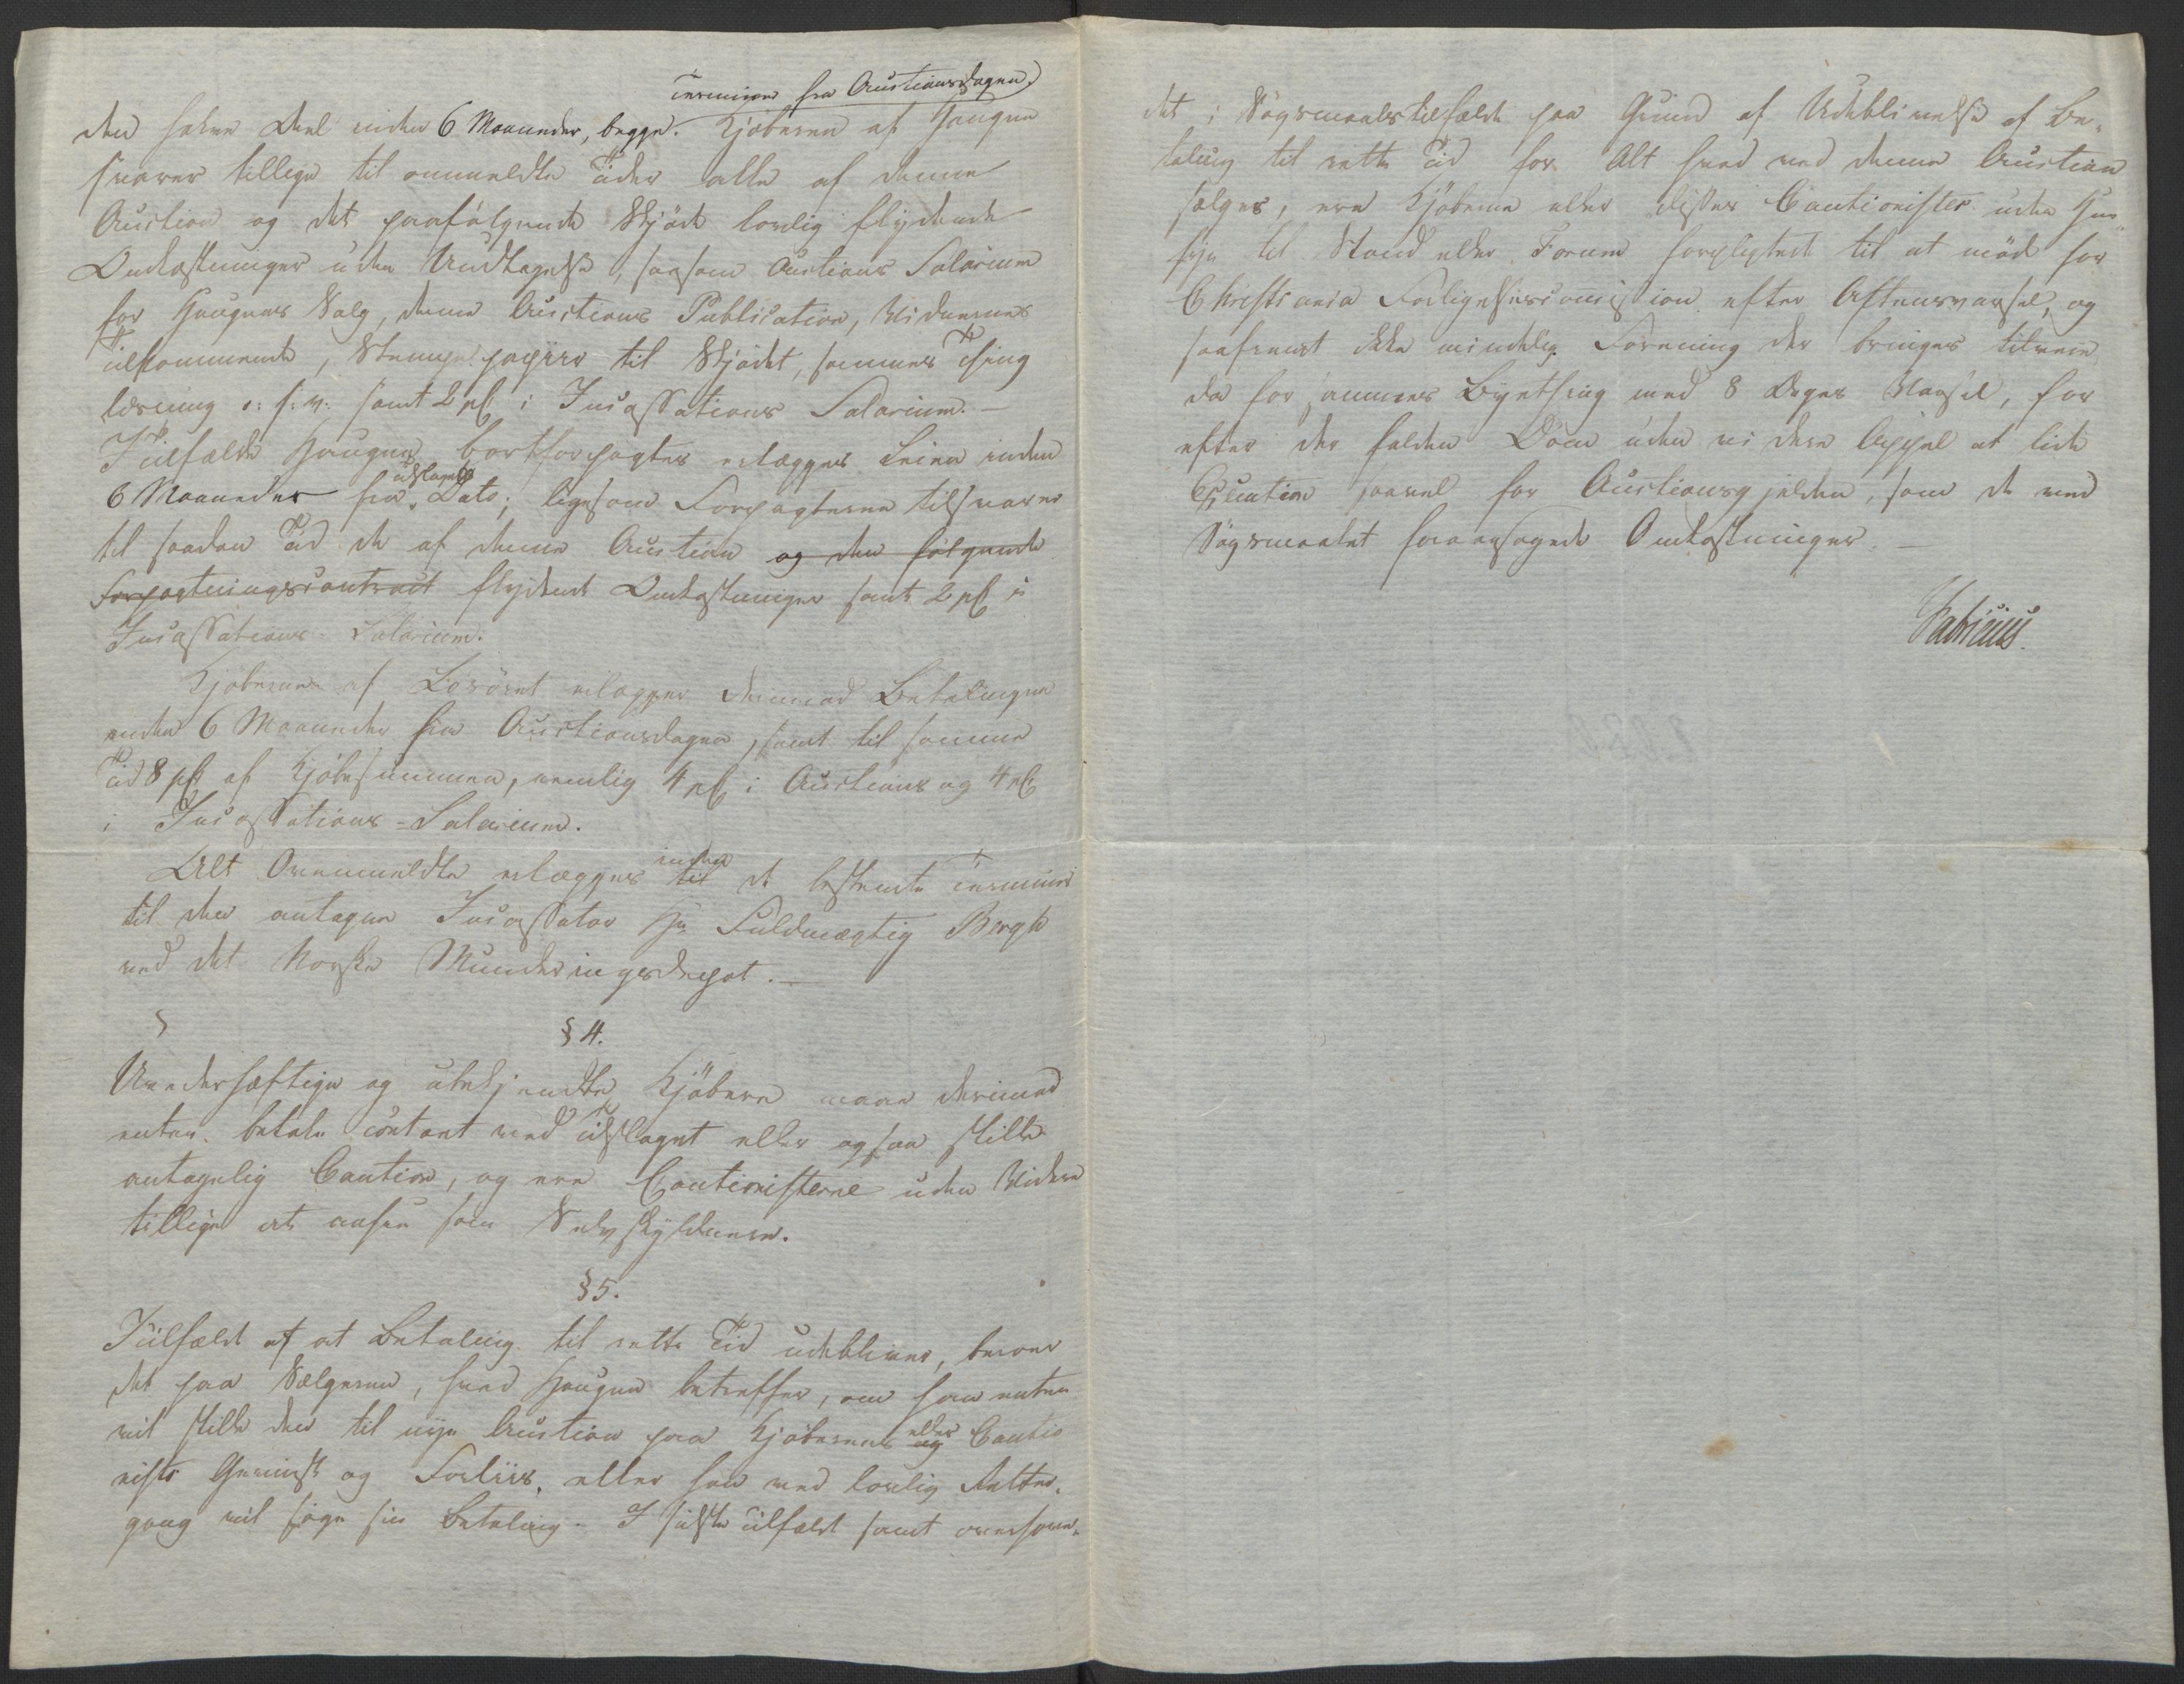 terminer fra Auctionsdagen.
den halve Deel inden 6 Maaneder, begge. Kjøberen af Haugen
svarer tillige til ommeldte Tider alle af denne
Auction og det paafølgende Skjøde lovlig flydende
Omkostninger uden Undtagelse, saasom Auctions Salarium
for Haugens Salg, denne Auctions Publication, Vidnernes
Tilkommende, Stempelpapiir til Skjødet, sammes Thing
læsning o: s: v: samt 2 pCt i Incassations Salarium. —
I Tilfælde Haugen bortforpagtes erlægges Leien inden
6 Maaneder fra Tilslagets Dato; ligesom Forpagteren tilsvarer
til saadan Tid de af denne Auction og den følgende
Forpagtningscontract flydende Omkostninger samt 2 pCt i
Incassations-Salarium.
Kjøberne af Løsøret erlægger derimod Betalingen
inden 6 Maaneder fra Auctionsdagen, samt til samme
Tid 8 pCt af Kjøbesummen, nemlig 4 pCt i Auctions og 4 pCt
i Incassations-Salarium.
Alt Ovenmeldte erlægges til inden de bestemte Terminer
til den antagne Incassator Hr Fuldmægtig Bergh
ved det Norske Munderingsdepot. —
§ 4.
Uvederhæftige og ubekjendte Kjøbere maae derimod
enten betale contant ved Tilslaget eller ogsaa stille
antagelig Caution, og ere Cautionisterne uden Videre
tillige at ansee som Selvskyldnere.
§ 5.
I Tilfælde af at Betaling til rette Tid udebliver, beroer
det paa Sælgeren, hvad Haugen betreffer, om han enten
vil stille den til nye Auction paa Kjøberens og eller Cautio
nists Gevinst og Forliis, eller han ved lovlig Retter-
gang vil søge sin Betaling. I sidste Tilfælde samt overhove-
det i Søgsmaalstilfælde paa Grund af Udeblivelse af Be-
taling til rette Tid for Alt hvad ved denne Auction
sælges, ere Kjøberne eller disses Cautionister uden Hen-
syn til Stand eller Forum forpligtede til at møde for
Christiania Forligelsescommission efter Aftensvarsel, og
saafremt ikke mindelig Forening der bringes tilveie
da for sammes Byething med 8 Dages Varsel, for
efter der falden Dom uden videre Appel at lide
Execution saavel for Auctionsgjelden, som de ved
Søgsmaalet foraarsagede Omkostninger. —
Fabricius.